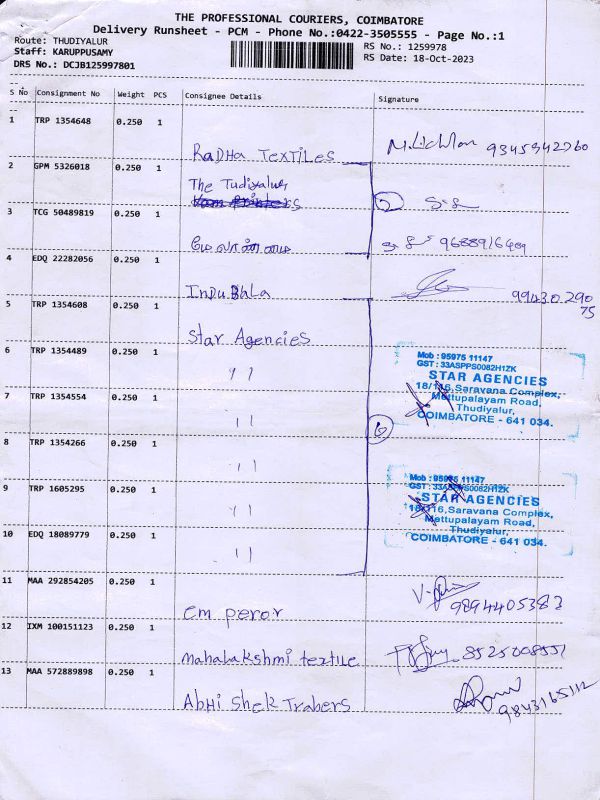 THE PROFESSIONAL COURIERS, COIMBATORE
Delivery Runsheet - PCM - Phone No.:0422-3505555 - Page No.:1
Route: THUDIYALUR
Staff: KARUPPUSAMY
DRS No.: DCJB125997801
RS No.: 1259978
RS Date: 18-Oct-2023
S No Consignment No Weight PCS Consignee Details Signature
1 TRP 1354648 0.250 1
RADHA TEXTILES 9345342760
2 GPM 5326018 0.250 1
The Tudiyalur
3 TCG 50489819 0.250 1
9688916489
4 EDQ 22282056 0.250 1
INDU BALA 99430 290
75
5 TRP 1354608 0.250 1
Star Agencies
6 TRP 1354489 0.250 1
11
7 TRP 1354554 0.250 1
11
Mob : 95975 11147
GST : 33ASPPS0082H1ZK
STAR AGENCIES
18/116, Saravana Complex,
Mettupalayam Road,
Thudiyalur,
COIMBATORE - 641 034.
6
8 TRP 1354266 0.250 1
11
9 TRP 1605295 0.250 1
11
10 EDQ 18089779 0.250 1
11
Mob : 95975 11147
GST : 33ASPPS0082H1ZK
STAR AGENCIES
18/116, Saravana Complex,
Mettupalayam Road,
Thudiyalur,
COIMBATORE - 641 034.
11 MAA 292854205 0.250 1
em peror 9894405383
12 IXM 100151123 0.250 1
mahalakshmi textile 8525008551
13 MAA 572889898 0.250 1
Abhi Shek Trabers 9843165112